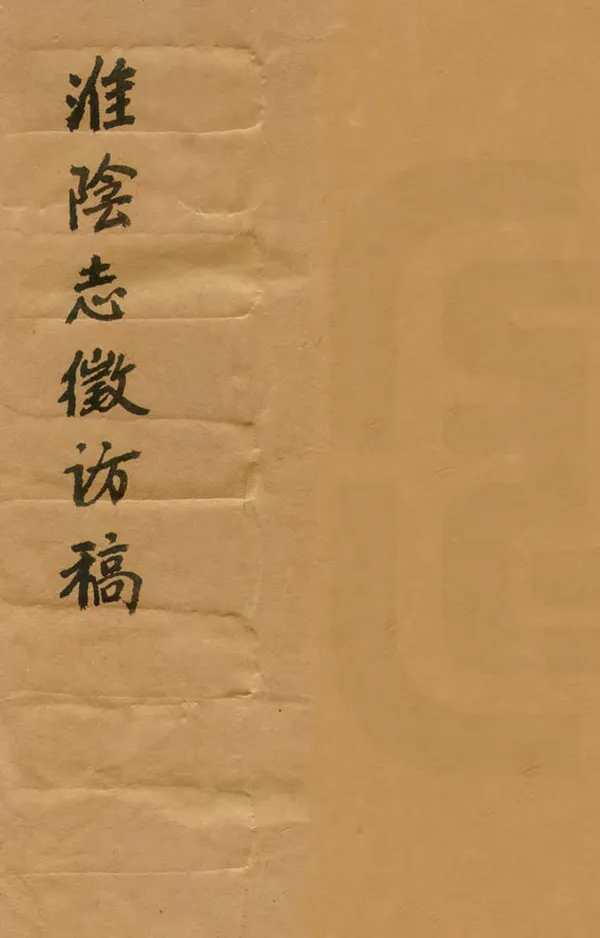 淮陰志徵访稿